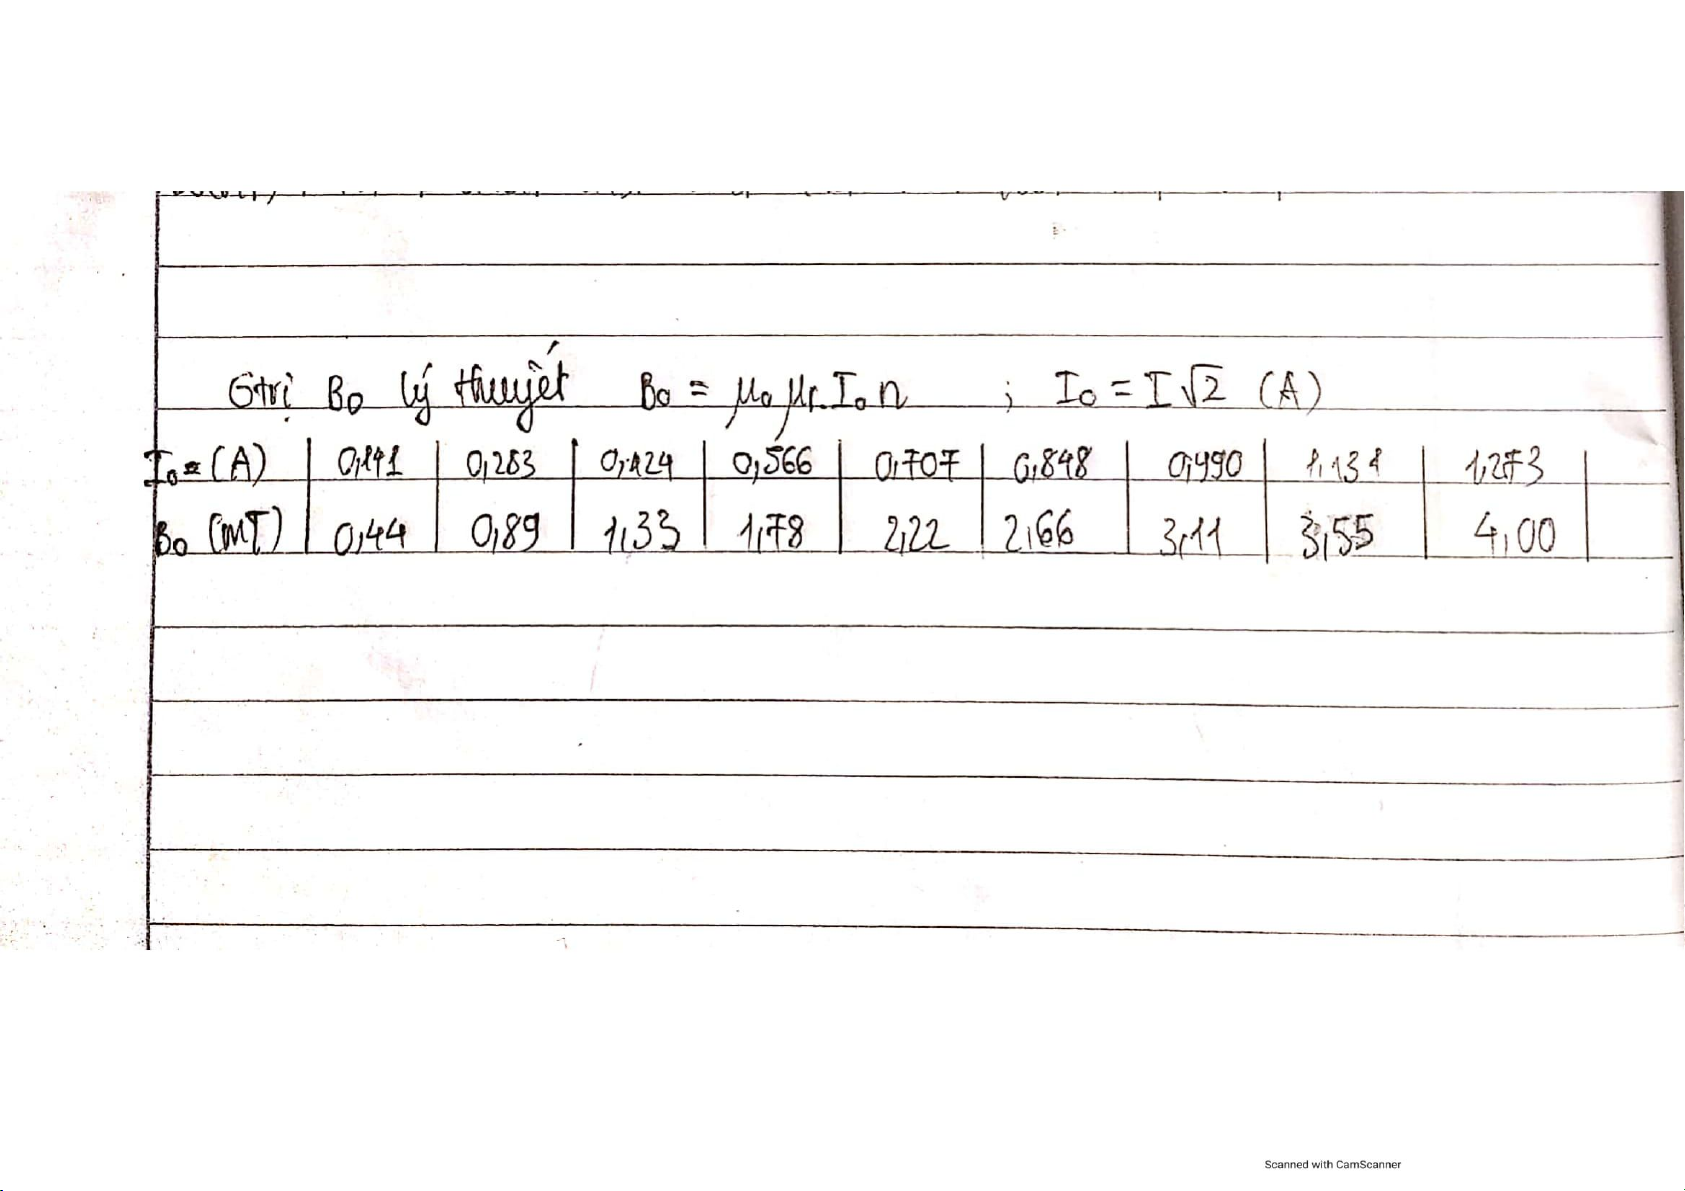 Gtrị B₀ lý thuyết B₀ = μ₀ μr. I₀ n ; I₀ = I√2 (A)
I₀ = (A) | 0,141 | 0,283 | 0,424 | 0,566 | 0,707 | 0,848 | 0,990 | 1,131 | 1,273 |
B₀ (mT) | 0,44 | 0,89 | 1,33 | 1,78 | 2,22 | 2,66 | 3,11 | 3,55 | 4,00 |
Scanned with CamScanner